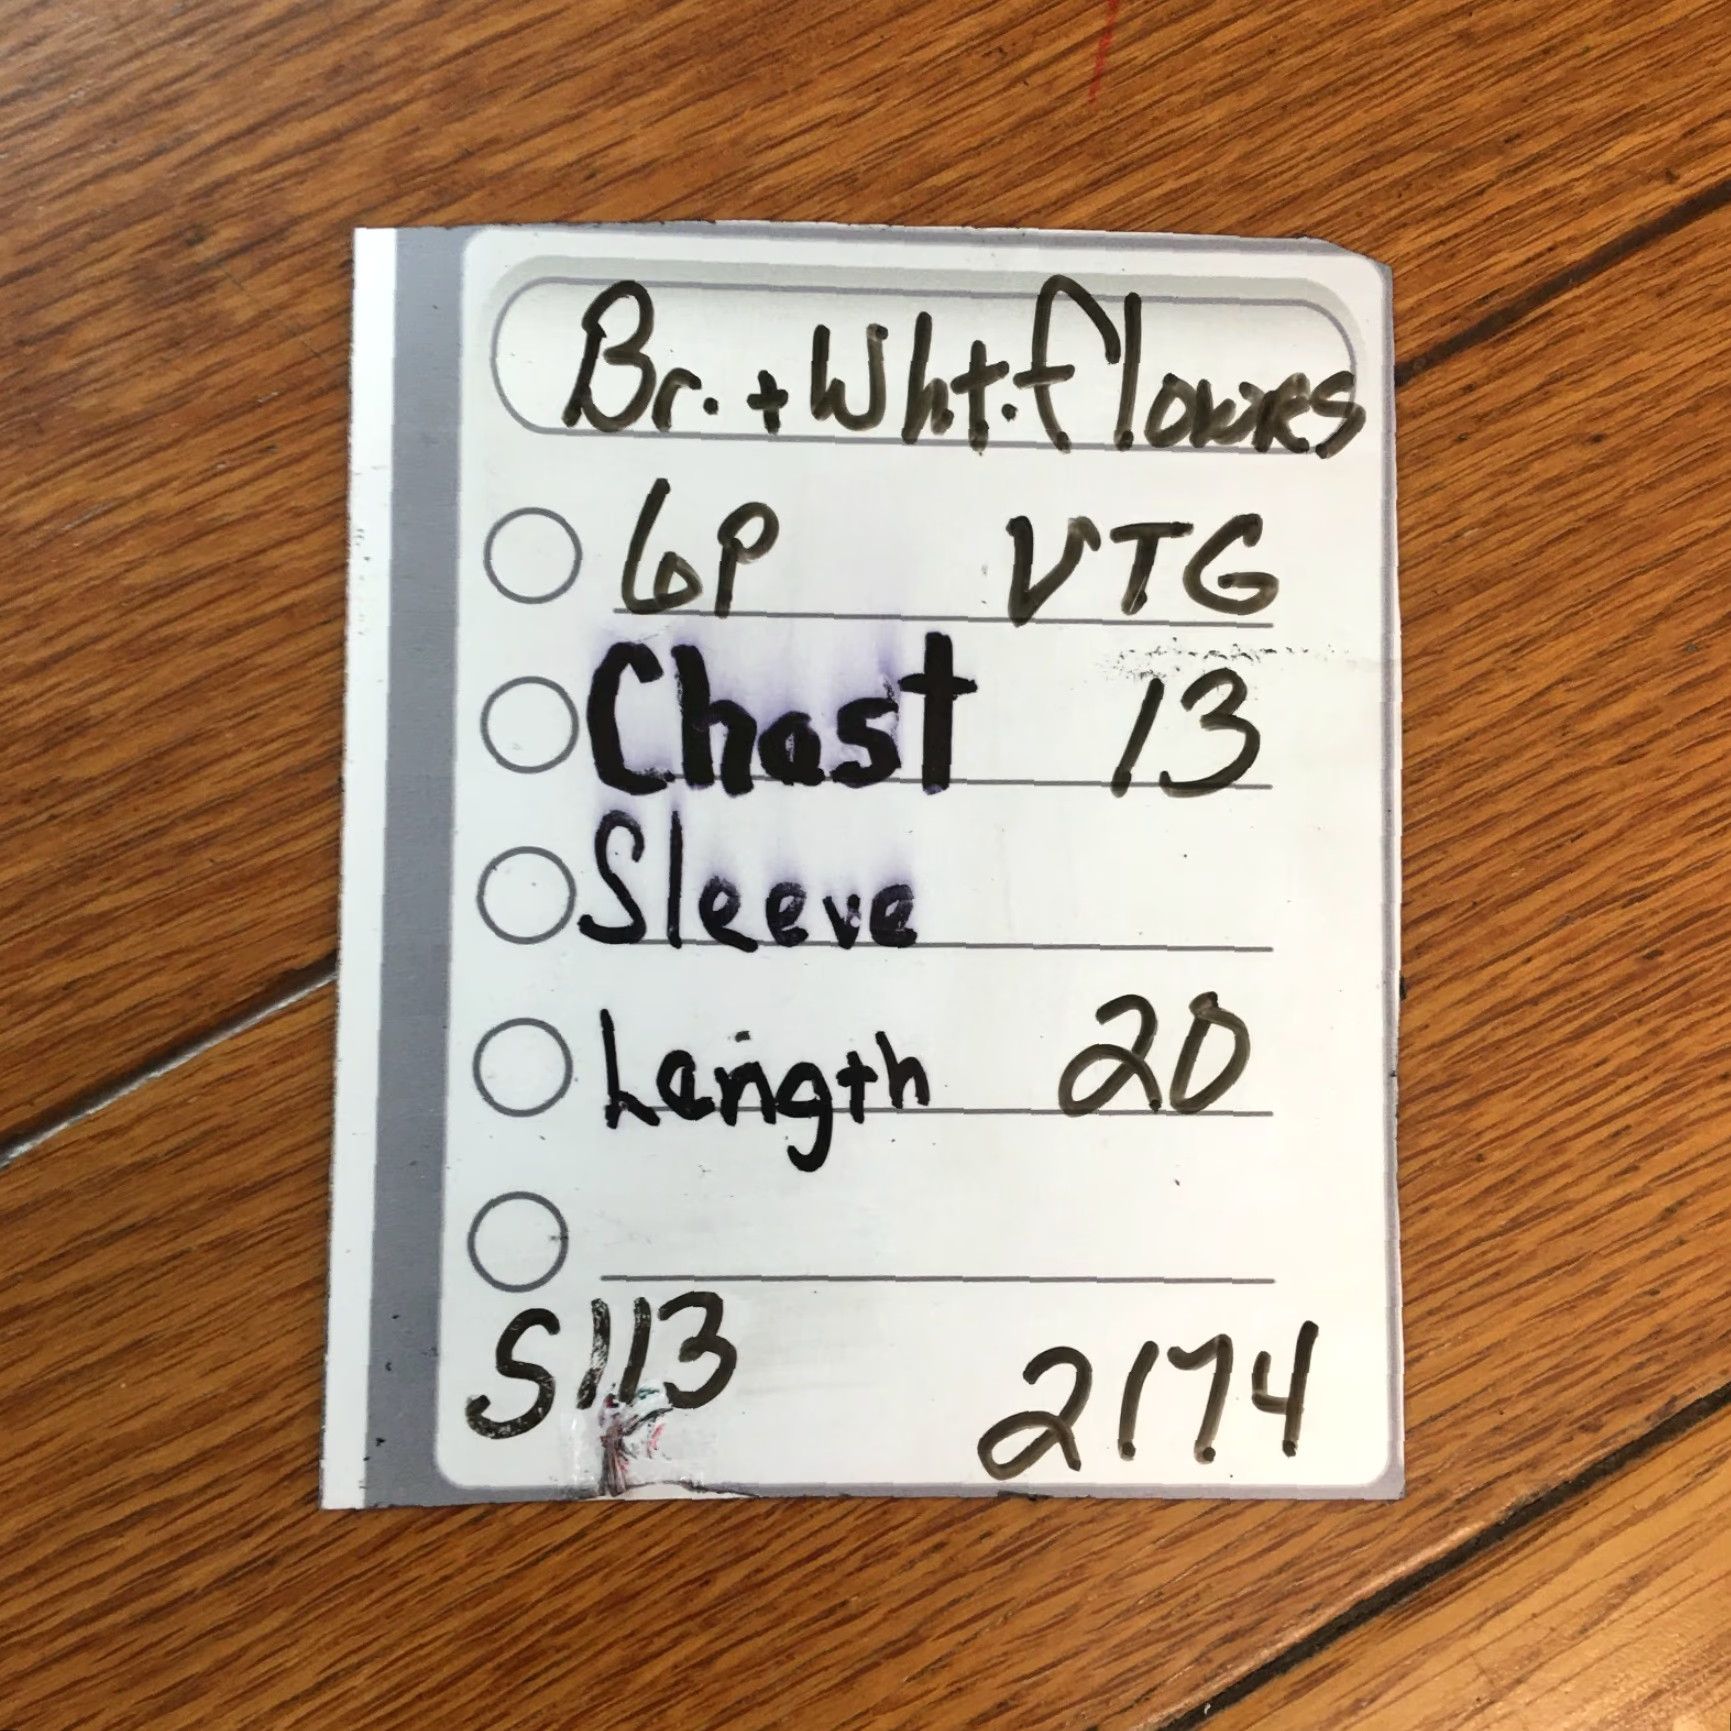 Br. + Wht. flowres
6P VTG
Chest 13
Sleeve
Length 20
S113 2174